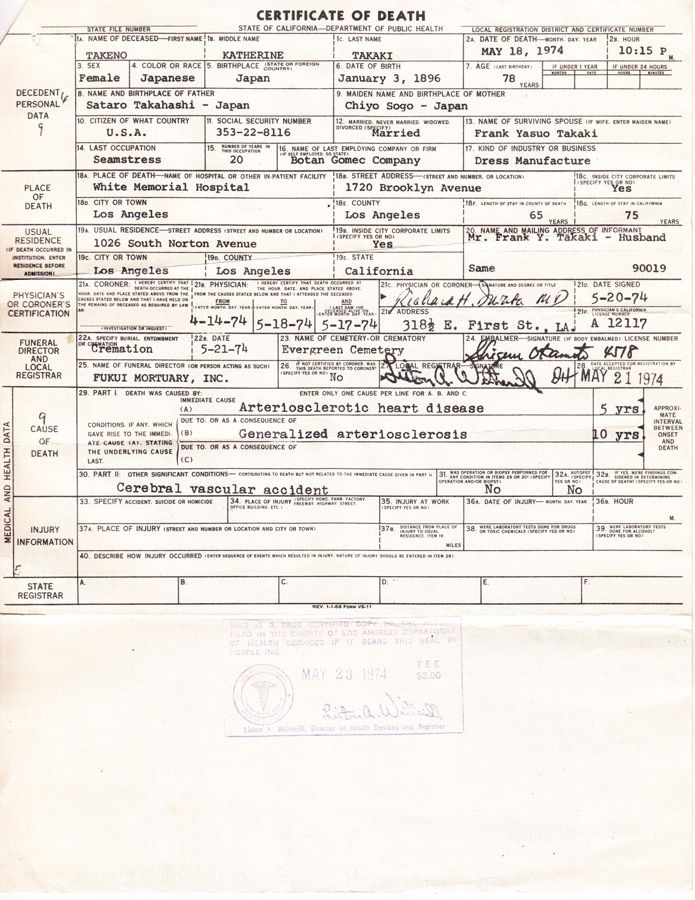 CERTIFICATE OF DEATH
STATE FILE NUMBER
STATE OF CALIFORNIA—DEPARTMENT OF PUBLIC HEALTH
LOCAL REGISTRATION DISTRICT AND CERTIFICATE NUMBER
DECEDENT PERSONAL DATA
1A. NAME OF DECEASED—FIRST NAME
TAKENO
1B. MIDDLE NAME
KATHERINE
1C. LAST NAME
TAKAKI
2A. DATE OF DEATH—MONTH. DAY. YEAR
MAY 18, 1974
2B. HOUR
10:15 P M.
3. SEX
Female
4. COLOR OR RACE
Japanese
5. BIRTHPLACE (STATE OR FOREIGN COUNTRY)
Japan
6. DATE OF BIRTH
January 3, 1896
7. AGE (LAST BIRTHDAY)
78 YEARS
IF UNDER 1 YEAR
MONTHS DAYS
IF UNDER 24 HOURS
HOURS MINUTES
8. NAME AND BIRTHPLACE OF FATHER
Sataro Takahashi - Japan
9. MAIDEN NAME AND BIRTHPLACE OF MOTHER
Chiyo Sogo - Japan
10. CITIZEN OF WHAT COUNTRY
U.S.A.
11. SOCIAL SECURITY NUMBER
353-22-8116
12. MARRIED. NEVER MARRIED. WIDOWED. DIVORCED (SPECIFY)
Married
13. NAME OF SURVIVING SPOUSE (IF WIFE. ENTER MAIDEN NAME)
Frank Yasuo Takaki
14. LAST OCCUPATION
Seamstress
15. NUMBER OF YEARS IN THIS OCCUPATION
20
16. NAME OF LAST EMPLOYING COMPANY OR FIRM (IF SELF EMPLOYED. SO STATE)
Botan Gomec Company
17. KIND OF INDUSTRY OR BUSINESS
Dress Manufacture
PLACE OF DEATH
18A. PLACE OF DEATH—NAME OF HOSPITAL OR OTHER IN-PATIENT FACILITY
White Memorial Hospital
18B. STREET ADDRESS—(STREET AND NUMBER, OR LOCATION)
1720 Brooklyn Avenue
18C. INSIDE CITY CORPORATE LIMITS (SPECIFY YES OR NO)
Yes
18D. CITY OR TOWN
Los Angeles
18E. COUNTY
Los Angeles
18F. LENGTH OF STAY IN COUNTY OF DEATH
65 YEARS
18G. LENGTH OF STAY IN CALIFORNIA
75 YEARS
USUAL RESIDENCE
(IF DEATH OCCURRED IN INSTITUTION. ENTER RESIDENCE BEFORE ADMISSION)
19A. USUAL RESIDENCE—STREET ADDRESS (STREET AND NUMBER OR LOCATION)
1026 South Norton Avenue
19B. INSIDE CITY CORPORATE LIMITS (SPECIFY YES OR NO)
Yes
20. NAME AND MAILING ADDRESS OF INFORMANT
Mr. Frank Y. Takaki - Husband
19C. CITY OR TOWN
Los Angeles
19D. COUNTY
Los Angeles
19E. STATE
California
Same 90019
PHYSICIAN'S OR CORONER'S CERTIFICATION
21A. CORONER: I HEREBY CERTIFY THAT DEATH OCCURRED AT THE HOUR. DATE AND PLACE STATED ABOVE FROM THE CAUSES STATED BELOW AND THAT I HAVE HELD ON THE REMAINS OF DECEASED AS REQUIRED BY LAW AN
(INVESTIGATION OR INQUEST)
21B. PHYSICIAN: I HEREBY CERTIFY THAT DEATH OCCURRED AT THE HOUR, DATE, AND PLACE STATED ABOVE, FROM THE CAUSES STATED BELOW AND THAT I ATTENDED THE DECEASED
FROM TO AND
4-14-74 5-18-74 5-17-74
21C. PHYSICIAN OR CORONER—SIGNATURE AND DEGREE OR TITLE
Richard H. MD
21D. DATE SIGNED
5-20-74
21E. ADDRESS
318½ E. First St., LA.
21F. PHYSICIAN'S CALIFORNIA LICENSE NUMBER
A 12117
FUNERAL DIRECTOR AND LOCAL REGISTRAR
22A. SPECIFY BURIAL. ENTOMBMENT OR CREMATION
Cremation
22B. DATE
5-21-74
23. NAME OF CEMETERY OR CREMATORY
Evergreen Cemetery
24. EMBALMER—SIGNATURE (IF BODY EMBALMED) LICENSE NUMBER
Shigeru Okamoto 4578
25. NAME OF FUNERAL DIRECTOR (OR PERSON ACTING AS SUCH)
FUKUI MORTUARY, INC.
26. IF NOT CERTIFIED BY CORONER. WAS THIS DEATH REPORTED TO CORONER? (SPECIFY YES OR NO)
No
27. LOCAL REGISTRAR—SIGNATURE
Liston A. Witherill DH
28. DATE ACCEPTED FOR REGISTRATION BY LOCAL REGISTRAR
MAY 21 1974
MEDICAL AND HEALTH DATA
CAUSE OF DEATH
29. PART I. DEATH WAS CAUSED BY:
ENTER ONLY ONE CAUSE PER LINE FOR A. B. AND C
IMMEDIATE CAUSE
(A) Arteriosclerotic heart disease
5 yrs.
CONDITIONS. IF ANY. WHICH GAVE RISE TO THE IMMEDIATE CAUSE (A). STATING THE UNDERLYING CAUSE LAST.
DUE TO. OR AS A CONSEQUENCE OF
(B) Generalized arteriosclerosis
10 yrs.
DUE TO. OR AS A CONSEQUENCE OF
(C)
APPROXIMATE INTERVAL BETWEEN ONSET AND DEATH
30. PART II: OTHER SIGNIFICANT CONDITIONS—CONTRIBUTING TO DEATH BUT NOT RELATED TO THE IMMEDIATE CAUSE GIVEN IN PART I A
Cerebral vascular accident
31. WAS OPERATION OR BIOPSY PERFORMED FOR ANY CONDITION IN ITEMS 29 OR 30? (SPECIFY OPERATION AND/OR BIOPSY)
No
32A. AUTOPSY (SPECIFY YES OR NO)
No
32B. IF YES. WERE FINDINGS CONSIDERED IN DETERMINING CAUSE OF DEATH? (SPECIFY YES OR NO)
INJURY INFORMATION
33. SPECIFY ACCIDENT. SUICIDE OR HOMICIDE
34. PLACE OF INJURY (SPECIFY HOME. FARM. FACTORY. FREEWAY. HIGHWAY. STREET. OFFICE BUILDING. ETC.)
35. INJURY AT WORK (SPECIFY YES OR NO)
36A. DATE OF INJURY—MONTH. DAY. YEAR
36B. HOUR
M.
37A. PLACE OF INJURY (STREET AND NUMBER OR LOCATION AND CITY OR TOWN)
37B. DISTANCE FROM PLACE OF INJURY TO USUAL RESIDENCE. (ITEM 19)
MILES
38. WERE LABORATORY TESTS DONE FOR DRUGS OR TOXIC CHEMICALS (SPECIFY YES OR NO)
39. WERE LABORATORY TESTS DONE FOR ALCOHOL? (SPECIFY YES OR NO)
40. DESCRIBE HOW INJURY OCCURRED (ENTER SEQUENCE OF EVENTS WHICH RESULTED IN INJURY. NATURE OF INJURY SHOULD BE ENTERED IN ITEM 29)
STATE REGISTRAR
A. B. C. D. E. F.
REV. 1-1-68 FORM VS-11
THIS IS A TRUE CERTIFIED COPY OF THE
FILED IN THE COUNTY OF LOS ANGELES DEPARTMENT
OF HEALTH SERVICES IF IT BEARS THIS SEAL IN
PURPLE INK.
MAY 23 1974
FEE
$2.00
Liston A. Witherill
Liston A. Witherill, Director of Health Services and Registrar